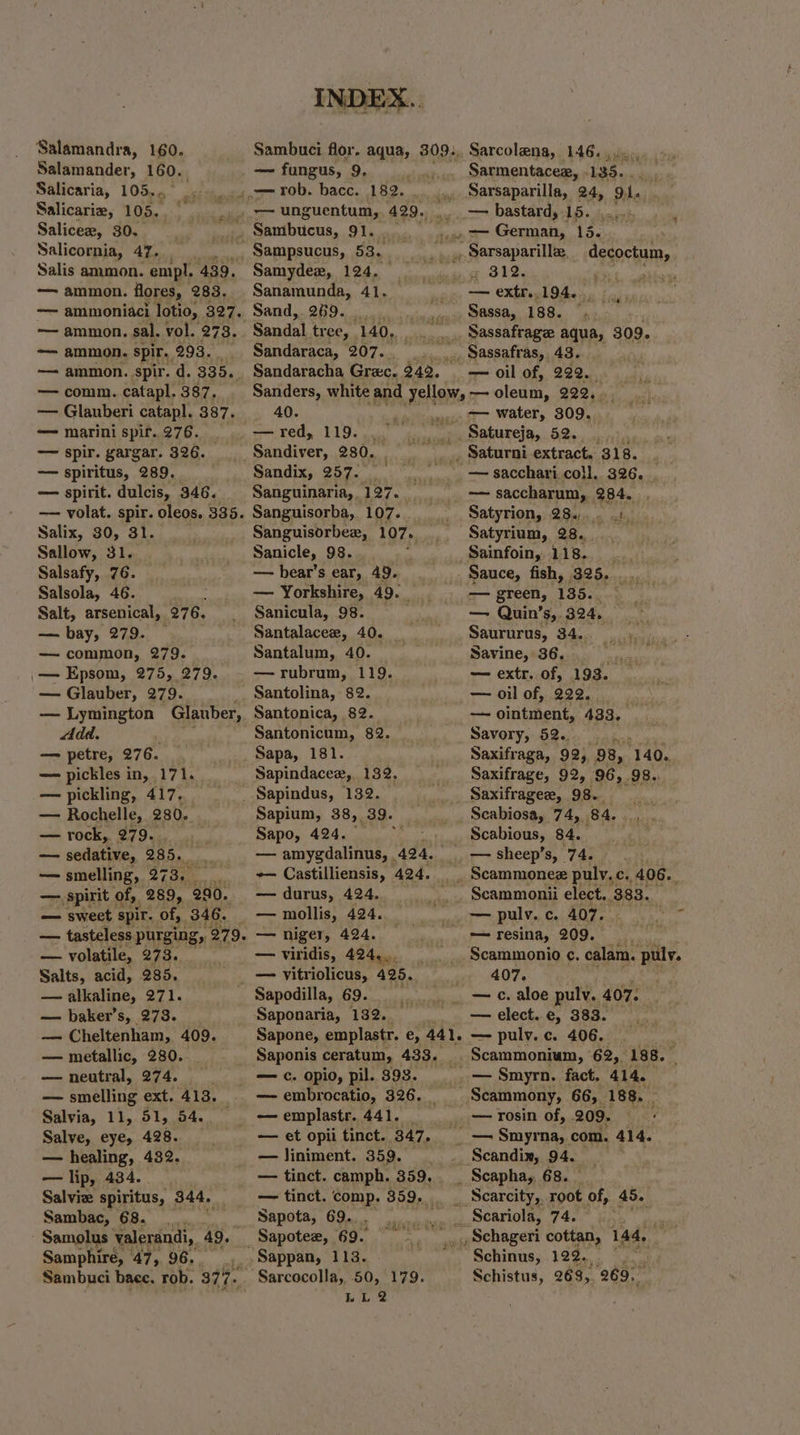 INDEX.
Salamandra, 160.
Salamander, 160.
Salicaria, 105.
Salicariæ, 105.
Saliceæ, 30.
Salicornia, 47.
Salis ammon. empl. 439.
— ammon. flores, 283.
— ammoniáci lotio, 327.
— ammon. sal. vol. 273.
— ammon. spir. 293.
— ammon. spir. d. 335.
— comm. catapl. 387.
— Glauberi catapl. 387.
— marini spir. 276.
— spir. gargar. 326.
— spiritus, 289.
— spirit. dulcis, 346.
— volat. spir. oleos. 335.
Salix, 30, 31.
Sallow, 31.
Salsafy, 76.
Salsola, 46.
Salt, arsenical, 276.
— bay, 279.
— common, 279.
— Epsom, 275, 279.
— Glauber, 279.
— Lymington Glauber,
Add.
— petre, 276.
— pickles in, 171.
— pickling, 417.
— Rochelle, 280.
— rock, 279.
— sedative, 285.
— smelling, 273.
— spirit of, 289, 290.
— sweet spir. of, 346.
— tasteless purging, 279.
— volatile, 273.
Salts, acid, 285.
— alkaline, 271.
— baker's, 273.
— Cheltenham, 409.
— metallic, 280.
— neutral, 274.
— smelling ext. 413.
Salvia, 11, 51, 54.
Salve, eye, 428.
— healing, 432.
— lip, 434.
Salviæ spiritus, 344.
Sambac, 68.
Samolus valerandi, 49.
Samphire, 47, 96.
Sambuci bacc. rob. 377.
Sambuci flor. aqua, 309.
— fungus, 9.
— rob. bacc. 182.
— unguentum, 429.
Sambucus, 91.
Sampsucus, 53.
Samydeæ, 124.
Sanamunda, 41.
Sand, 269.
Sandal tree, 140.
Sandaraca, 207.
Sandaracha Græc. 242.
Sanders, white and yellow,
40.
— red, 119.
Sandiver, 280.
Sandix, 257.
Sanguinaria, 127.
Sanguisorba, 107.
Sanguisorbeæ, 107.
Sanicle, 98.
— bear's ear, 49.
— Yorkshire, 49.
Sanicula, 98.
Santalaceæ, 40.
Santalum, 40.
— rubrum, 119.
Santolina, 82.
Santonica, 82.
Santonicum, 82.
Sapa, 181.
Sapindaceæ, 132.
Sapindus, 132.
Sapium, 38, 39.
Sapo, 424.
— amygdalinus, 424.
— Castilliensis, 424.
— durus, 424.
— mollis, 424.
— niger, 424.
— viridis, 424.
— vitriolicus, 425.
Sapodilla, 69.
Saponaria, 132.
Sapone, emplastr. e, 441.
Saponis ceratum, 433.
— c. opio, pil. 393.
— embrocatio, 326.
— emplastr. 441.
— et opii tinct. 347.
— liniment. 359.
— tinct. camph. 359.
— tinct. comp. 359.
Sapota, 69.
Sapoteæ, 69.
Sappan, 113.
Sarcocolla, 50, 179.
Sarcolæna, 146.
Sarmentaceæ, 135.
Sarsaparilla, 24, 91.
— bastard, 15.
— German, 15.
Sarsaparillæ decoctum,
312.
— extr. 194.
Sassa, 188.
Sassafragæ aqua, 309.
Sassafras, 43.
— oil of, 222.
— oleum, 222.
— water, 309.
Satureja, 52.
Saturni extract. 318.
— sacchari coll. 326.
— saccharum, 284.
Satyrion, 28.
Satyrium, 28.
Sainfoin, 118.
Sauce, fish, 325.
— green, 135.
— Quin's, 324.
Saururus, 34.
Savine, 36.
— extr. of, 193.
— oil of, 222.
— ointment, 433.
Savory, 52.
Saxifraga, 92, 98, 140.
Saxifrage, 92, 96, 98.
Saxifrageæ, 98.
Scabiosa, 74, 84.
Scabious, 84.
— sheep's, 74.
Scammoneæ pulv. c. 406.
Scammonii elect. 383.
— pulv. c. 407.
— resina, 209.
Scammonio c. calam. pulv.
407.
— c. aloe pulv. 407.
— elect. e, 383.
— pulv. c. 406.
Scammonium, 62, 188.
— Smyrn. fact. 414.
Scammony, 66, 188.
— rosin of, 209.
— Smyrna, com. 414.
Scandix, 94.
Scapha, 68.
Scarcity, root of, 45.
Scariola, 74.
Schageri cottan, 144.
Schinus, 122.
Schistus, 268, 269.
L L 2